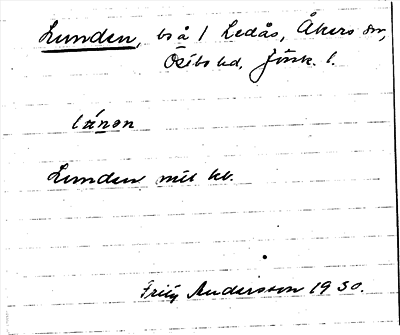 Lunden, bs å 1 Ledås, Åkers sn,
Östbo hd, Jönk. l.
lánen
Lunden mil kb.
Fritz Andersson 1930.